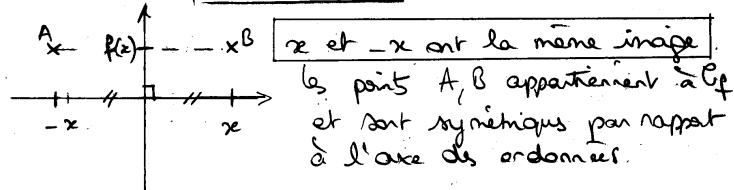 A f(x) B
-x x
x et -x ont la même image.
les points A, B appartiennent à Cf
et sont symétriques par rapport
à l'axe des ordonnées.